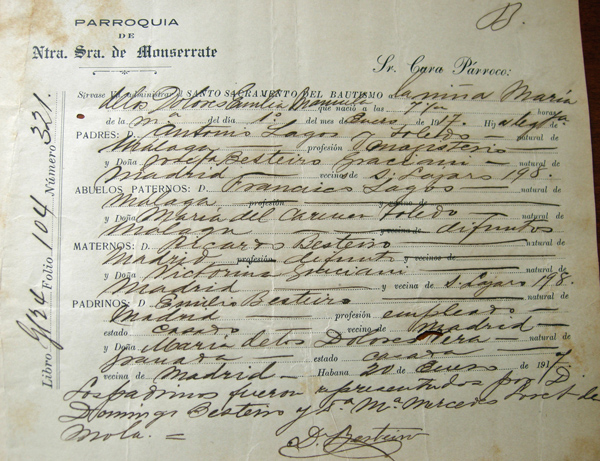 B.
PARROQUIA
DE
Ntra. Sra. de Monserrate
Sr. Cura Párroco:
Sírvase Vd. administrar el SANTO SACRAMENTO DEL BAUTISMO á la niña María
de los Dolores Emilia Manuela que nació a las 7 1/2
de la mª del día 1º del mes de Enero de 1917. Hij
PADRES: D. Antonio Lagos y Toledo natural de
Málaga profesión magisterio
y Doña Josefa Besteiro Graciani de
Madrid vecinos de S. Lázaro 198.
ABUELOS PATERNOS: D. Francisco Lagos natural de
Málaga profesión y vecino de
y Doña María del Carmen Toledo natural de
Málaga y vecina de difuntos
MATERNOS: D. Ricardo Besteiro natural de
Madrid profesión difunto y vecinos de
y Doña Victorina Graciani natural de
Madrid y vecina de S. Lázaro 198.
PADRINOS: D. Emilio Besteiro natural de
Madrid profesión empleado
estado casado vecino de Madrid
y Doña María de los Dolores Vera natural de
Granada estado casada
vecina de Madrid Habana 20 de Enero de 1917
Los padrinos fueron representados por D.
Domingo Besteiro y Sª Mª Mercedes de
Mola. =
D. Besteiro
Libro Folio 104 Número 321.